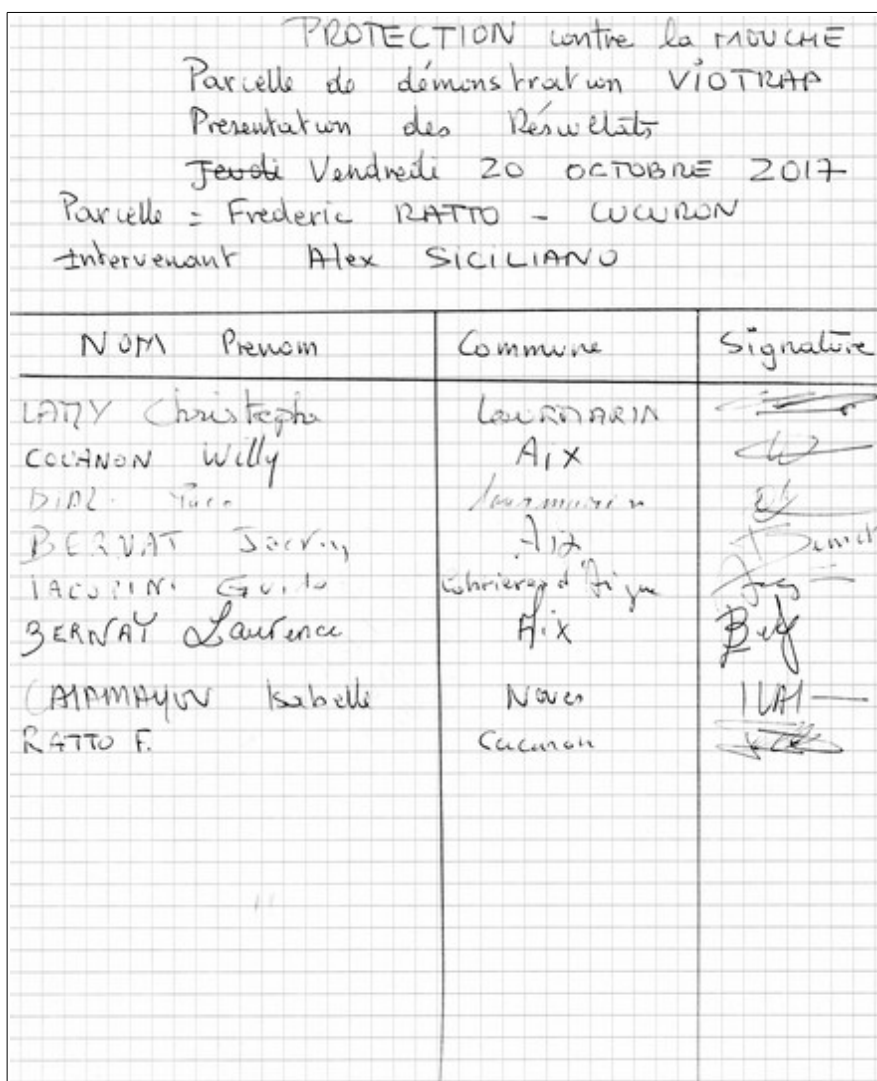 PROTECTION contre la MOUCHE
Parcelle de démonstration VIOTRAP
Presentation des Résultats
Jeudi Vendredi 20 OCTOBRE 2017
Parcelle = Frederic RATTO - CUCURON
Intervenant Alex SICILIANO
NOM Prenom Commune Signature
LAMY Christophe LOURMARIN
COUANON Willy Aix
Lourmarin
BERNAT Aix
Guido Cabrieres d'Aigue
BERNAT Laurence Aix
Isabelle Noves
RATTO F. Cucuron